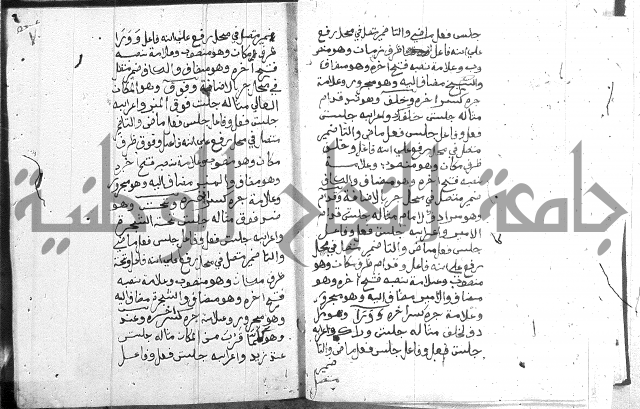 جلس فعل ماضي والتا ضمير متصل في محل رفع
على انه فاعل ظرف زمان وهو منصو
وب وعلامة نصبه فتح اخره وهو مضاف
والشيخ مضاف اليه وهو مجرور وعلامة
جره كسر اخره وخلف وهو ضد قدام
مثاله جلست خلفك واعرابه جلست
فعل وفاعل جلس فعل ماضي والتا ضمير
متصل في محل رفع على انه فاعل وخلف
ظرف مكان وهو منصوب وعلامة
نصبه فتح اخره وهو مضاف والكاف
ضمير متصل في محل جر بالاضافة وقدام
وهو مرادف الامام مثاله جلست قدام
الامير واعرابه جلست فعل وفاعل
جلس فعل ماضي والتا ضمير متصل في محل
رفع على انه فاعل وقدام ظرف مكان وهو
منصوب وعلامة نصبه فتح اخره وهو
مضاف والامير مضاف اليه وهو مجرور
وعلامة جره كسر اخره وورا وهو مرا
دف لخلف مثاله جلست وراك واعرابه
جلست فعل وفاعل جلس فعل ماضي والتا
ضمير
متصل
ضمير متصل في محل رفع على انه فاعل وورا
ظرف مكان وهو منصوب وعلامة نصبه
فتح اخره وهو مضاف والكاف ضمير متصل
في محل جر بالاضافة وفوق وهو المكان
العالي مثاله جلست فوق المنبر واعرابه
جلست فعل وفاعل جلس فعل ماضي والتا ضمير
متصل في محل رفع على انه فاعل وفوق ظرف
مكان وهو منصوب وعلامة نصبه فتح اخره
وهو مضاف والمنبر مضاف اليه وهو مجرور
وعلامة جره كسر اخره وتحت وهو
ضد فوق مثاله جلست تحت الشجرة
واعرابه جلست فعل وفاعل جلس فعل ماضي
والتا ضمير متصل في محل رفع على انه فاعل وتحت
ظرف مكان وهو منصوب وعلامة نصبه
فتح اخره وهو مضاف والشجرة مضاف اليه
وهو مجرور وعلامة جره كسر اخره وعند
وهو لما قرب من المكان مثاله جلست
عند زيد واعرابه جلست فعل وفاعل
جامعة النجاح الوطنية